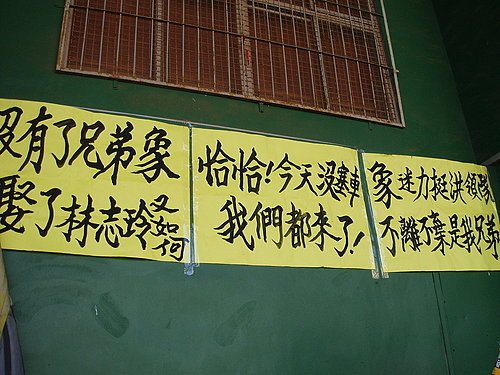 沒有了兄弟象
娶了林志玲又如何
恰恰!今天沒塞車
我們都來了!
象迷力挺洪領隊
不離不棄是我兄弟